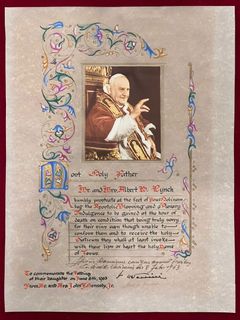 Most Holy Father
Mr. and Mrs. Albert W. Lynch
humbly prostrate at the feet of Your Holiness
beg the Apostolic Blessing and a Plenary
Indulgence to be gained at the hour of
death on condition that being truly sorry
for their sins even though unable to
confess them and to receive the holy
Viaticum they shall at least invoke
with their lips or heart the Holy Name
of Jesus.
To commemorate the Wedding
of their Daughter on June 8th, 1963